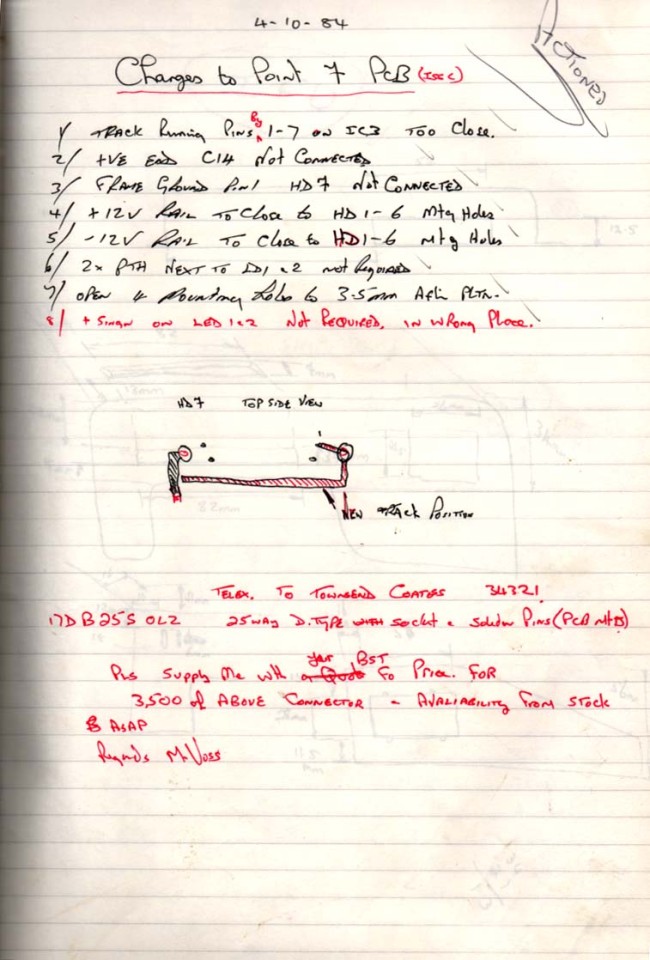 4-10-84
ACTIONED
Changes to Point 7 PCB (ISS C)
1/ TRACK Running Pins By 1-7 on IC3 TOO Close.
2/ +VE END C14 Not Connected
3/ FRAME GROUND Pin 1 HD7 Not CONNECTED
4/ +12V RAIL TO Close to HD1-6 Mtg Holes
5/ -12V RAIL TO Close to HD1-6 Mtg Holes
6/ 2x PTH NEXT TO 1 & 2 not Required
7/ OPEN 4 Mounting Holes to 3.5mm After PLTN.
8/ + Singn on LED 1&2 Not REQUIRED, IN WRONG Place.
HD7 TOP SIDE VIEW
1
NEW TRACK POSITION
TELEX. TO TOWNSEND COATES 34321
17D B25S OL2 25way D.TYPE WITH Socket & Solder Pins (PCB Mtg)
Pls Supply Me with a Quote your BST Fo Price. FOR
3,500 of ABOVE CONNECTOR - AVALIABILITY From STOCK
& ASAP
Regards M. Voss